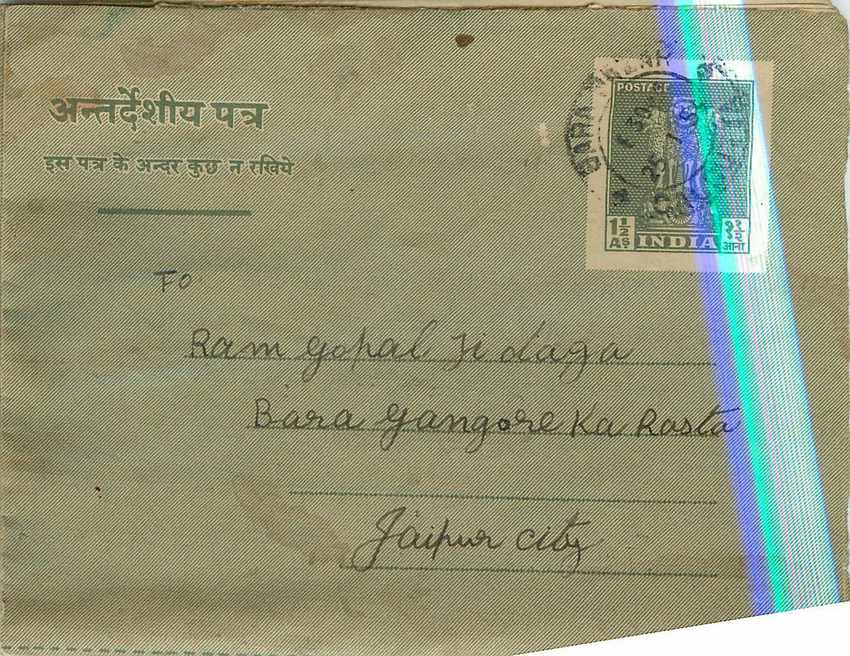 अन्तर्देशीय पत्र
इस पत्र के अन्दर कुछ न रखिये
POSTAGE
1½ AS INDIA १½ आना
TO
Ram Gopal Ji daga
Bara Gangore Ka Rasta
Jaipur city